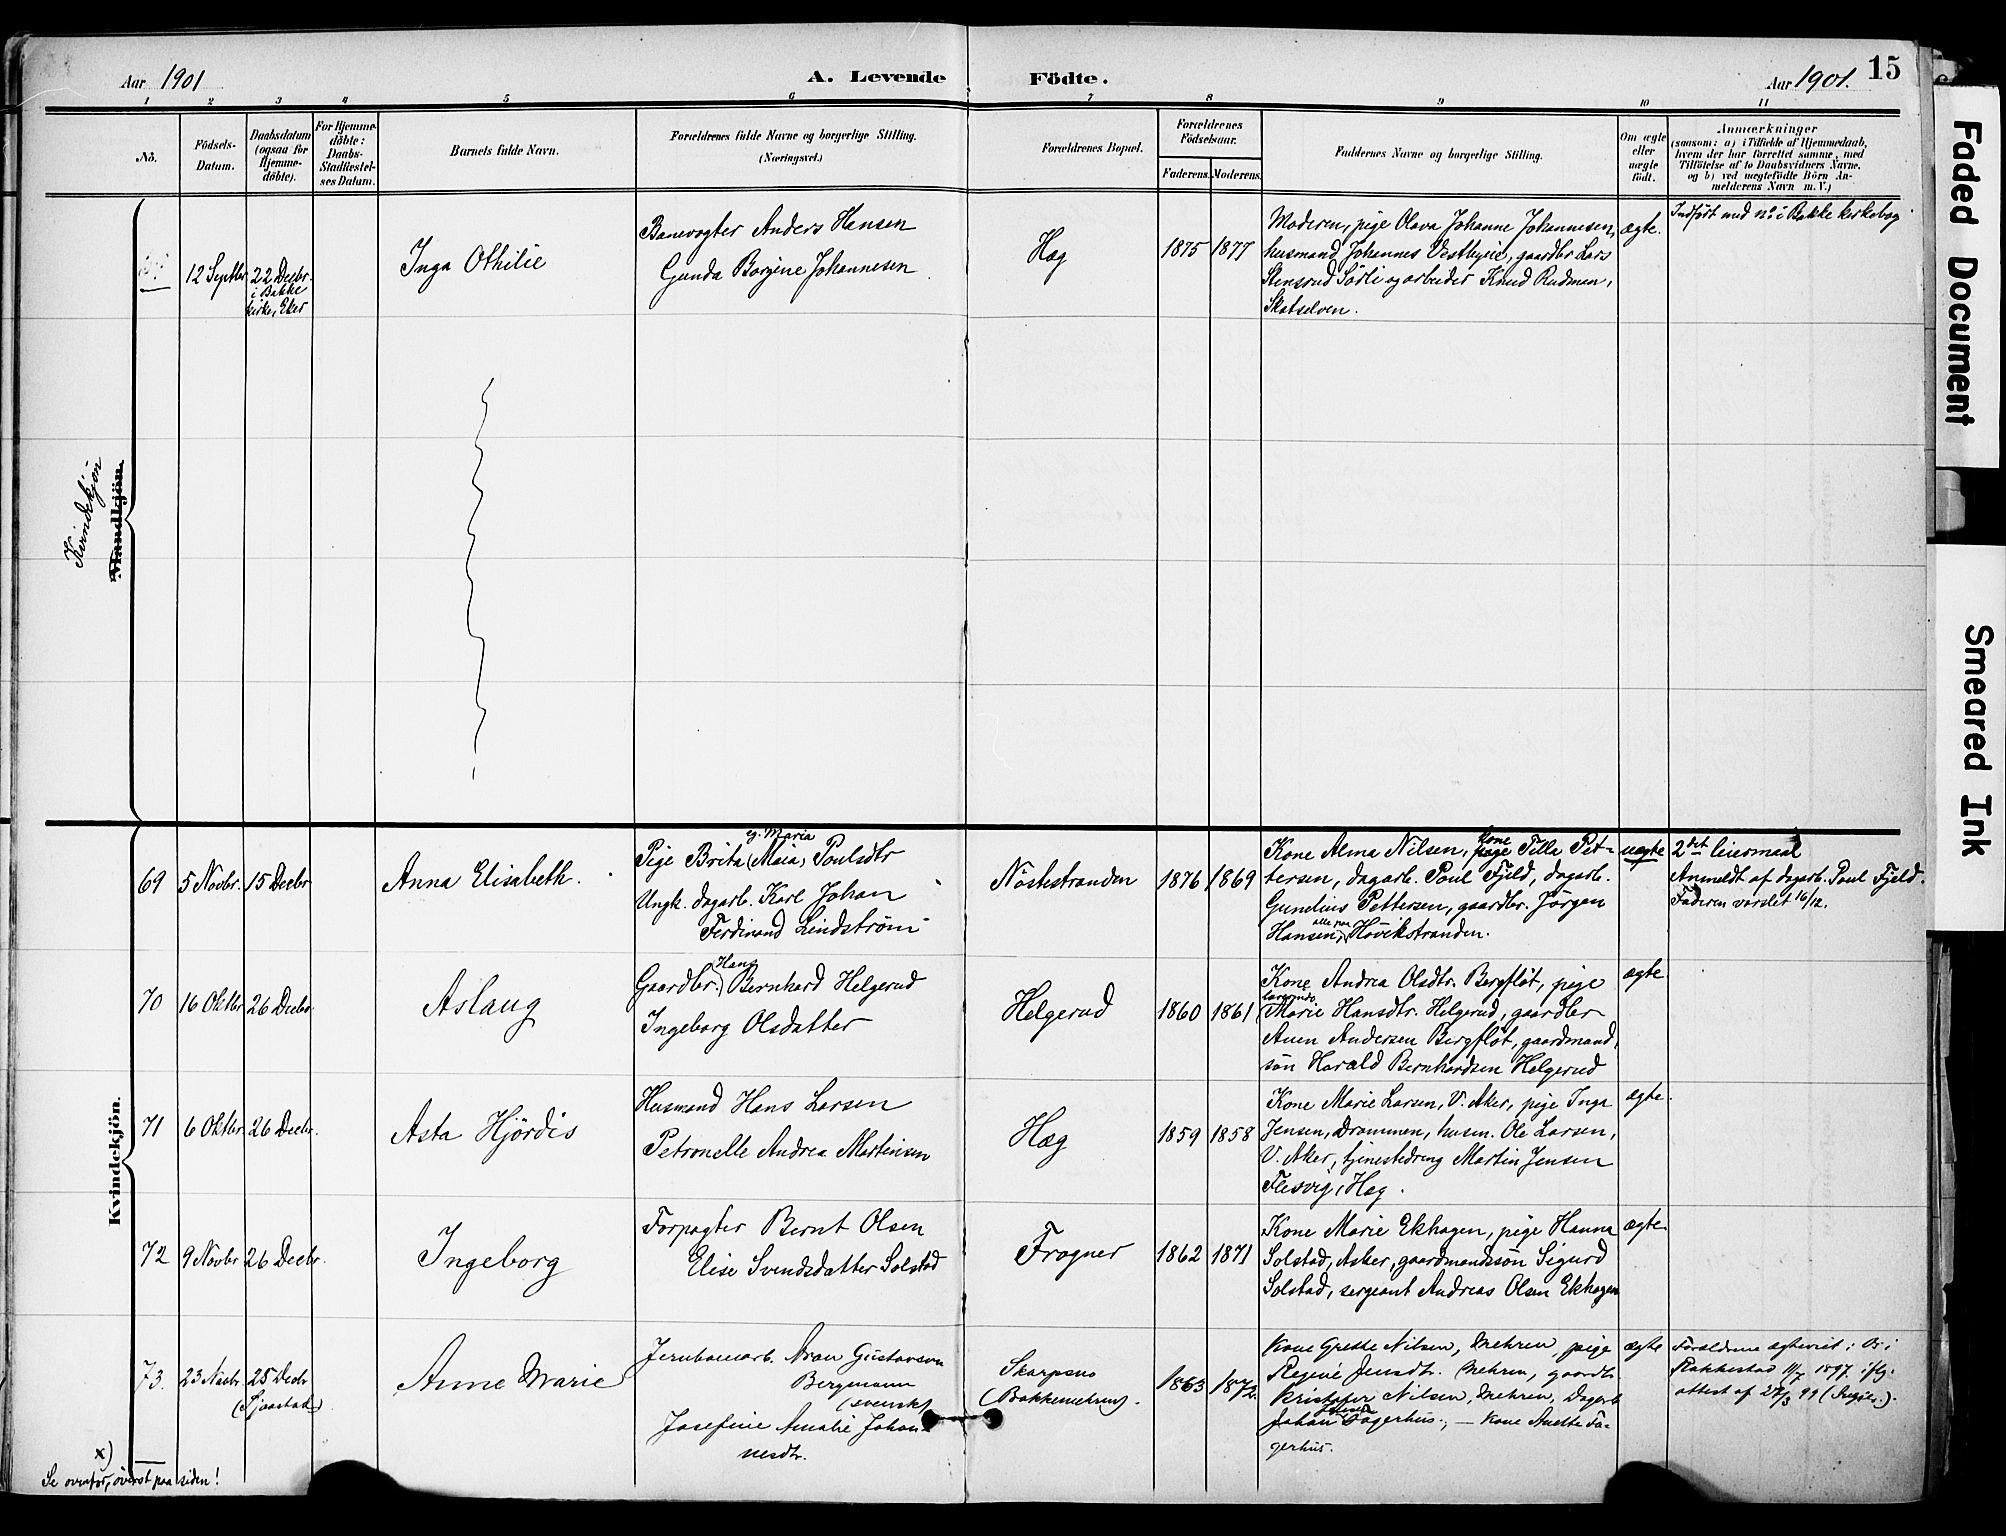 Aar 1901
A. Levende Födte.
Aar 1901. 15
1 2 3 4 5 6 7 8 9 10 11
No.
Födsels-
Datum.
Daabsdatum
(ogsaa for
Hjemme-
döbte).
For Hjemme-
döbte:
Daabs-
Stadfæstel-
ses Datum.
Barnets fulde Navn.
Forældrenes fulde Navne og borgerlige Stilling.
(Næringsvei.)
Forældrenes Bopæl.
Forældrenes
Födselsaar.
Faderens. Moderens.
Faddernes Navne og borgerlige Stilling.
Om ægte
eller
uægte
födt.
Anmærkninger
(saasom: a) i Tilfælde af Hjemmedaab,
hvem der har forrettet samme, med
Tilföielse af to Daabsvidners Navne.
og b) ved uægtefödte Börn An-
melderens Navn m. V.)
Kvindekjön
Mandkjön.
12 Septbr
22 Decbr.
i Bakke
kirke, Eker
Inga Othilie
Banevogter Anders Hansen
Gunda Borgine Johannesen
Hæg
1875 1877
Moderen, pige Olava Johanne Johannesen,
husmand Johannes Vestbyeie, gaardbr Lars
Stensrud Sörli og arbeider Knud Rudman,
Skotselven.
ægte.
Indfört med no i Bakke kirkebog
Kvindekjön.
69 5 Novbr. 15 Decbr
Anna Elisabeth.
eg. Maria
Pige Brita (Maia) Poulsdtr
Ungk. dagarb. Karl Johan
Ferdinand Lindström
Nöstestranden
1876 1869
Kone Alma Nilsen, kone pige Tilla Pet-
tersen, dagarb. Poul Fjeld, dagarb.
Gundius Pettersen, gaardbr. Jörgen
Hansen, alle paa Hövikstranden.
uægte
2det leiermaal
Anmeldt af dagarb. Poul Fjeld.
Faderen varslet 16/12.
70 16 Oktbr 26 Decbr.
Aslaug
Gaardbr. Hans Bernhard Helgerud
Ingeborg Olsdatter
Helgerud
1860 1861
Kone Andrea Olsdtr. Bergflöt, pige
Marie Hansdtr. Helgerud, gaardbr
Auen Andersen Bergflöt, gaardmand,
sön Harald Bernhardsen Helgerud
ægte.
71 6 Oktbr 26 Decbr.
Asta Hjördis
Husmand Hans Larsen
Petronelle Andrea Martinsen
Hæg
1859 1858
Kone Marie Larsen, V. Aker, pige Inga
Jensen, Drammen, husm. Ole Larsen,
V. Aker, tjenestedreng Martin Jensen
Flesvig, Hæg.
ægte.
72 9 Novbr 26 Decbr.
Ingeborg
Forpagter Bernt Olsen
Elise Svendsdatter Solstad
Frogner
1862 1871
Kone Marie Ekhagen, pige Hanna
Solstad, Asker, gaardmandssön Sigurd
Solstad, sergeant Andreas Olsen Ekhagen
ægte.
73. 23 Novbr. 25 Decbr
(Sjaastad)
Anne Marie
Jernbanearb. Aron Gustavson
Bergmann
(svensk)
Josefine Amalie Johan-
nesdtr.
Skarpsno
(Bakkemehren).
1863 1872.
Kone Grethe Nilsen, Mehren, pige
Regine Jensdtr. Mehren, gaardbr.
Kristofer Nilsen, Mehren, Dagarb
Johan Fagerhus, – Kone Anette Fa-
gerhus.
ægte
Forældrene ægteviet i
Rakkestad 11/7 1897 ifg.
attest af 27/3 99
x)
Se ovenfor, överst paa siden!
Faded Document
Smeared Ink